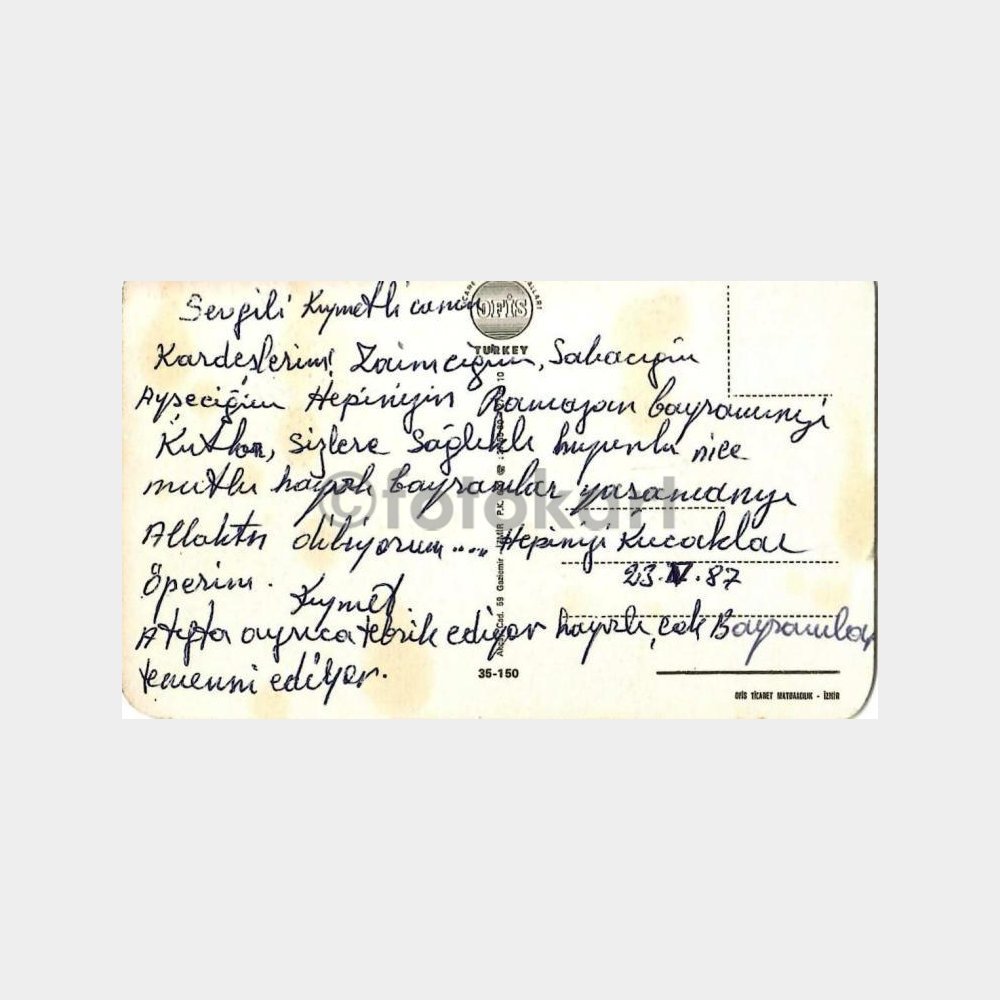 Sevgili Kıymetli canım
Kardeşlerim! Zaimciğim, Sabacığım
Ayşeciğim Hepinizin Ramazan bayramınızı
Kutlar, sizlere Sağlıklı huzurlu nice
mutlu hayırlı bayramlar yaşamanızı
Allahtan diliyorum.... Hepinizi Kucaklar
öperim.
23.V.87
Kıymet.
ayrıca tebrik ediyor hayırlı çok Bayramlar
temenni ediyor.
OFİS
TURKEY
35-150
OFİS TİCARET MATBAACILIK - İZMİR
©fotokart